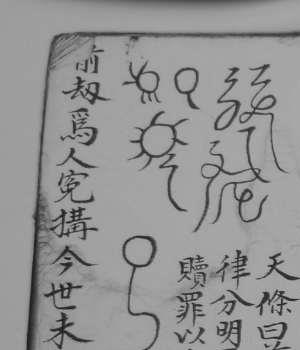 天條曰
律分明
贖罪以
前劫爲人冤搆今世未